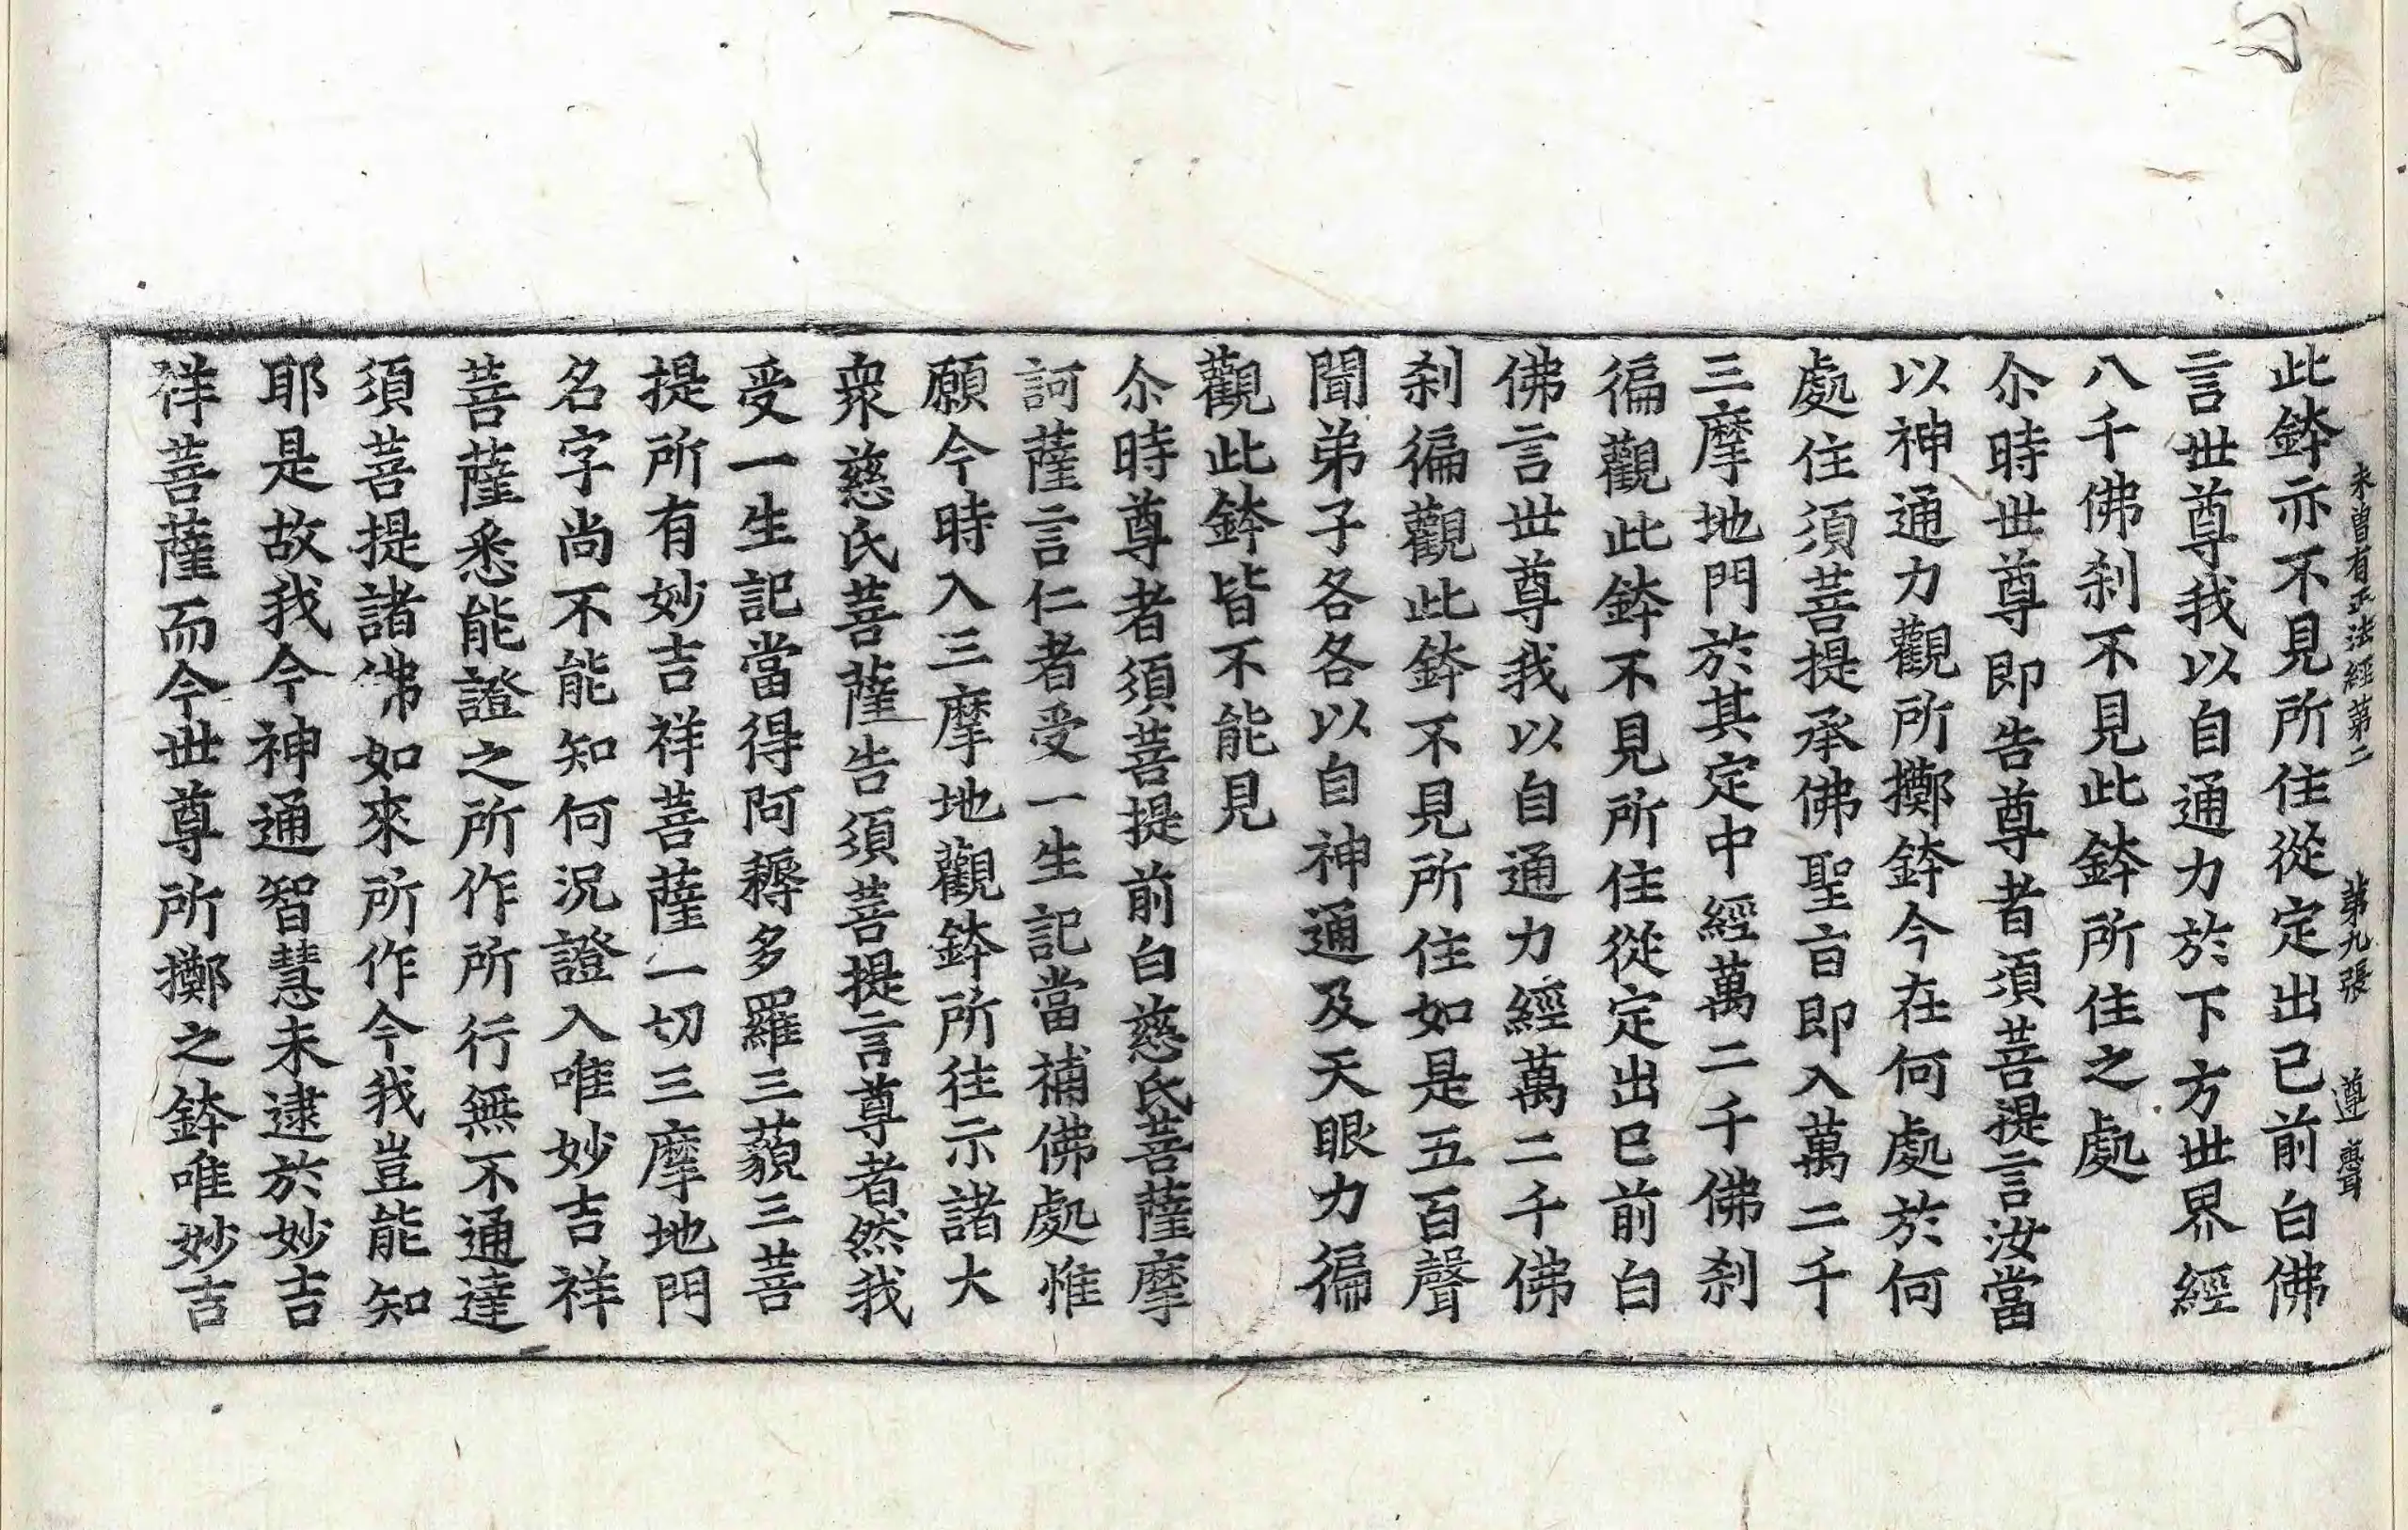 未曾有正法經第二 第九張 遵聲
此鉢亦不見所住從定出已前白佛
言世尊我以自通力於下方世界經
八千佛刹不見此鉢所住之處
尒時世尊即告尊者須菩提言汝當
以神通力觀所擲鉢今在何處於何
處住須菩提承佛聖旨即入萬二千
三摩地門於其定中經萬二千佛刹
徧觀此鉢不見所住從定出已前白
佛言世尊我以自通力經萬二千佛
刹徧觀此鉢不見所住如是五百聲
聞弟子各各以自神通及天眼力徧
觀此鉢皆不能見
尒時尊者須菩提前白慈氏菩薩摩
訶薩言仁者受一生記當補佛處惟
願今時入三摩地觀鉢所往示諸大
衆慈氏菩薩告須菩提言尊者然我
受一生記當得阿耨多羅三藐三菩
提所有妙吉祥菩薩一切三摩地門
名字尚不能知何況證入唯妙吉祥
菩薩悉能證之所作所行無不通達
須菩提諸佛如來所作今我豈能知
耶是故我今神通智慧未逮於妙吉
祥菩薩而今世尊所擲之鉢唯妙吉